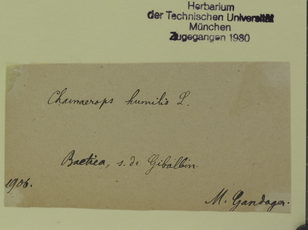 Herbarium
der Technischen Universität
München
Zugegangen 1980
Chamaerops humilis L.
Baetica, s. de Gibalbin
1906.
M. Gandoger.